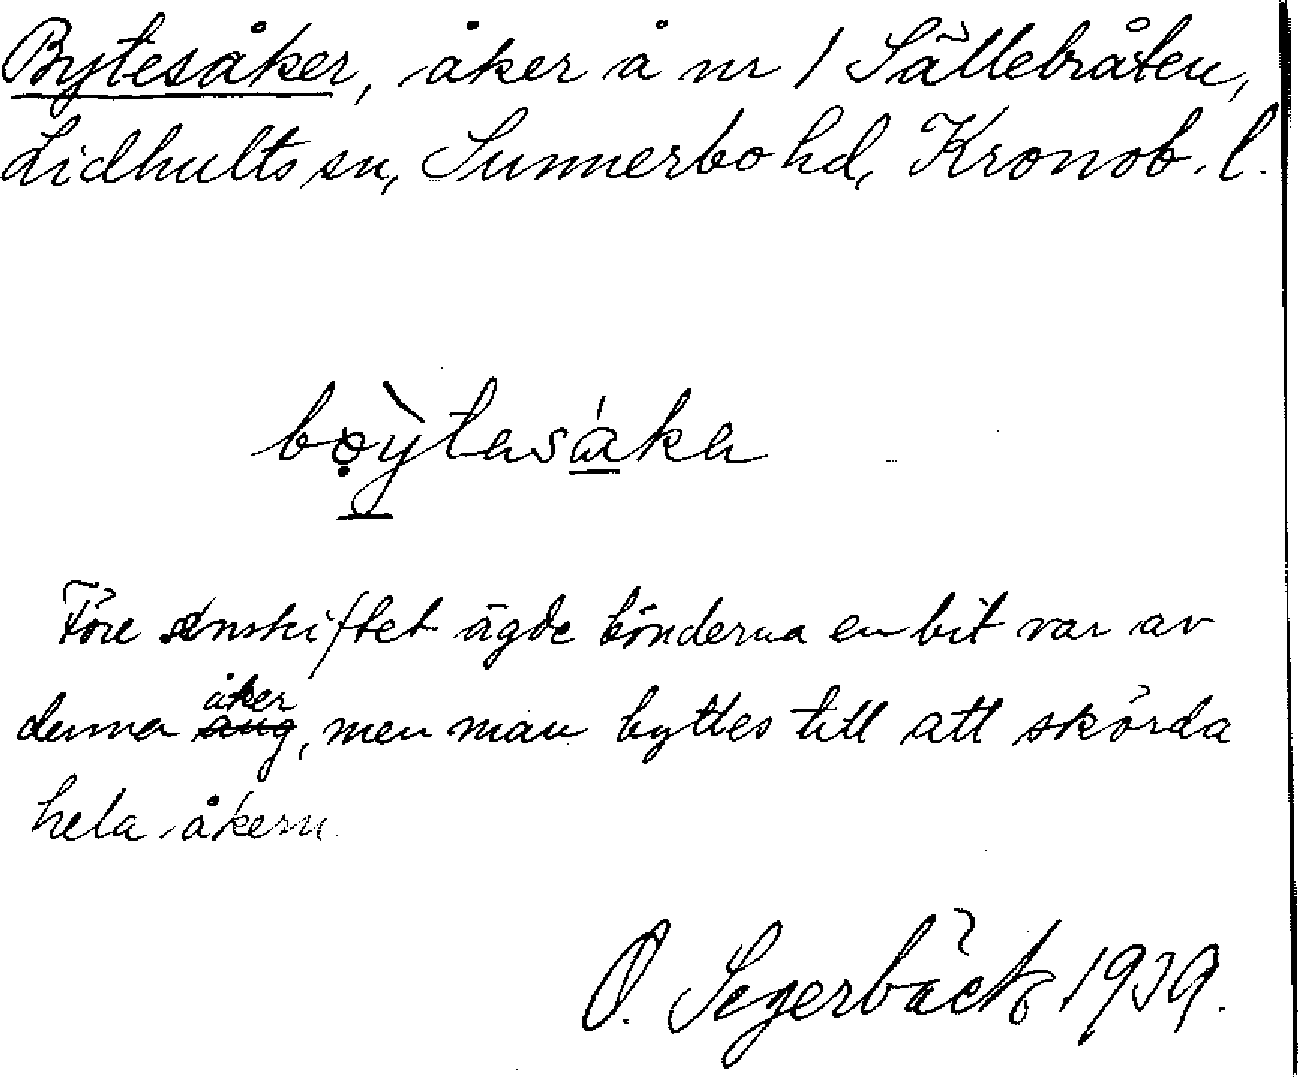 Bytesåker, åker å nr 1 Sällebråten,
Lidhults sn, Sunnerbo hd, Kronob. l.
bo̤ỳtasáka
Före enskiftet ägde bönderna en bit var av
denna åker, men man byttes till att skörda
hela åkern
O. Segerbäck 1939.